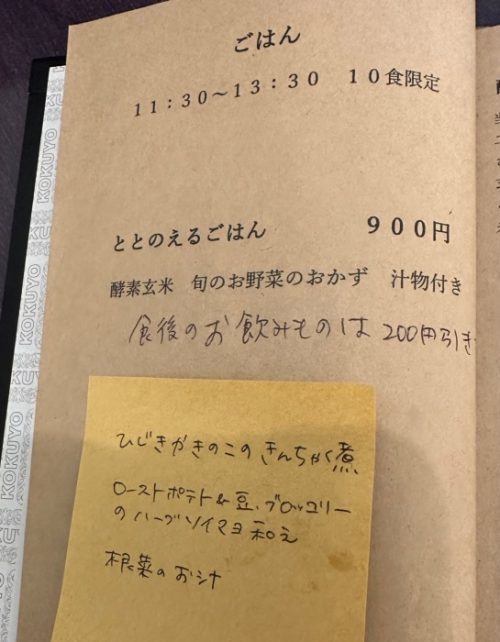 ごはん
11:30～13:30　10食限定
ととのえるごはん　900円
酵素玄米　旬のお野菜のおかず　汁物付き
食後のお飲みものは 200円引き
ひじきがきのこのきんちゃく煮
ローストポテト&豆、ブロッコリー
のハーブソイマヨ和え
根菜のお汁
KOKUYO
KOKUYO
KOKUYO
KOKUYO